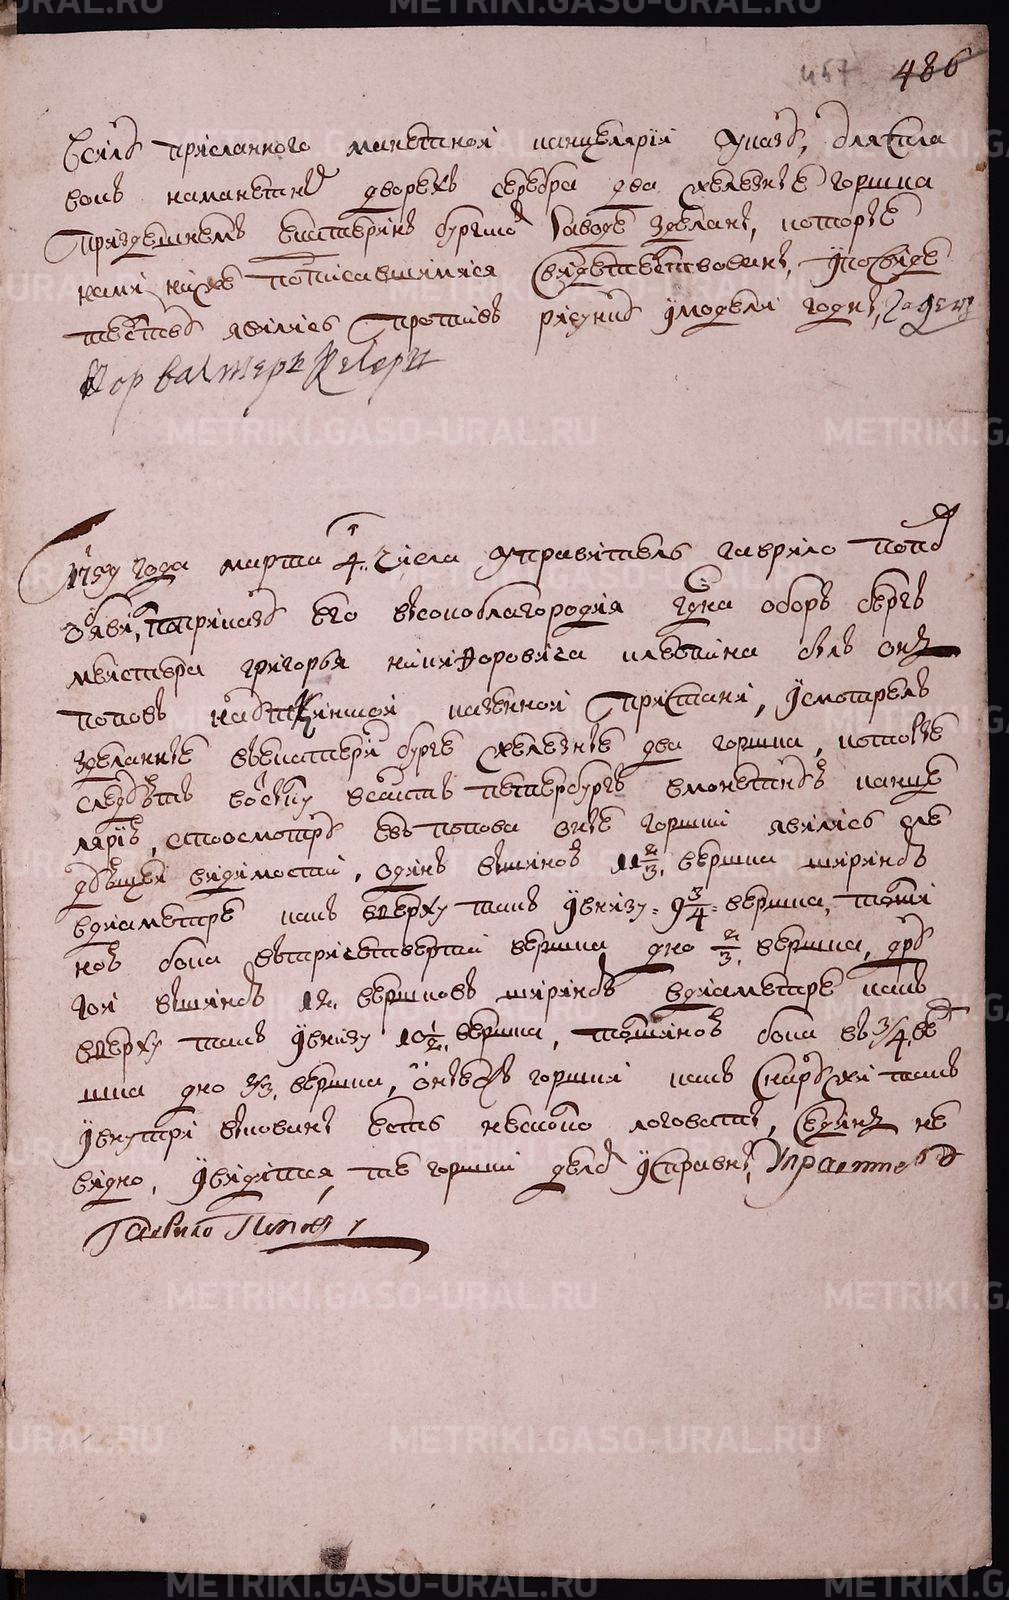 457 486
Всилу присланного манетной канцелярїи указу, для спла
вокъ наманетныхъ дворехъ серебра два железные горшка
призделшнемъ екатеринбургскомъ заводе зделаны, которые
нами ниже потписавшимися свидетелствованы, и по свиде
телству явились противъ рисунку и модели годны,
1759 года марта 4 г. числа управитель гаврило попов
обяви, поприказу его высокоблагородия гдна оберъ бергъ
мейстера григорья никифоровича клеопина былъ онъ
поповъ на уткинской казенной пристани, и смотрелъ
зделанные в екатеринбурге железные два горшка, которые
следуютъ в отвозку в санктъ петербургъ в монетную канце
лярию, и по осмотру ево попова оные горшки явились сле
дующей видимости, одинъ вышиною 11 2/3 вершка шириною
в диаметре какъ вверху такъ и внизу 9 3/4 вершка, толщи
ною бока в три четверти вершка дно 2/3 вершка, дру
гой вышиною 12 вершковъ шириною в диаметре какъ
вверху такъ и внизу 10 1/2 вершка, толщиною бока въ 3/4 вер
шка дно 2/3 вершка, оные горшки какъ снаружи такъ
и внутри выкованы есть несколко логоваты, седин не
видно, и видится, те горшки делу исправны, управитель
Гаврило Попов
METRIKI.GASO-URAL.RU